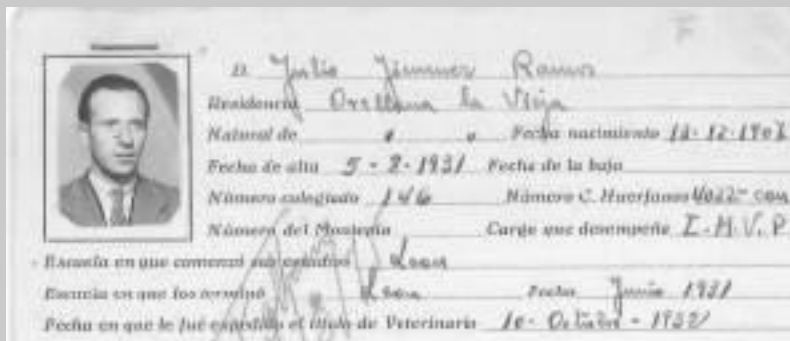 D. Julio Jimenez Ramos
Residencia Orellana la Vieja
Natural de " " Fecha nacimiento 12-12-190
Fecha de alta 5-8-1931 Fecha de la baja
Número colegiado 146 Número C. Huerfanos
Número del Montepio Cargo que desempeña I.M.V.P.
Escuela en que comenzó sus estudios Leon
Escuela en que los terminó Leon Fecha Junio 1931
Fecha en que le fué expedido el título de Veterinario 10-Octubre-1932